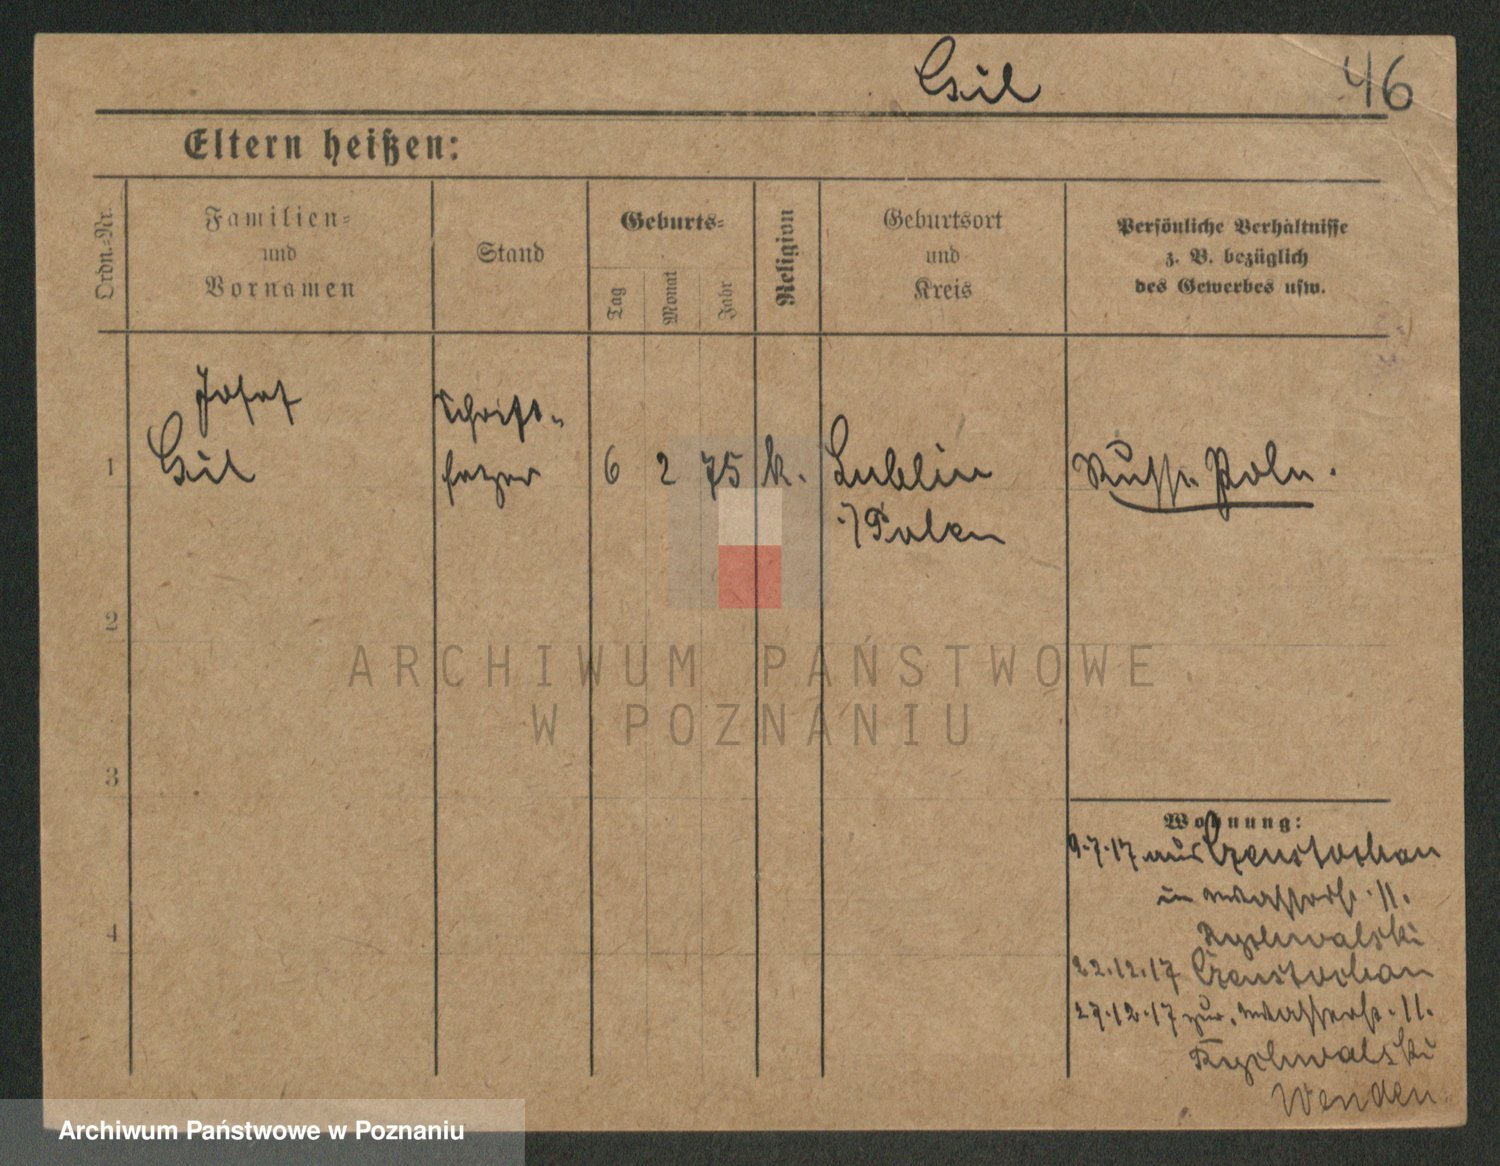 Gil
46
Eltern heißen:
Ordn.-Nr.
Familien-
und
Vornamen
Stand
Geburts-
Tag
Monat
Jahr
Religion
Geburtsort
und
Kreis
Persönliche Verhältnisse
z. B. bezüglich
des Gewerbes usw.
Josef
Schrift-
1
Gil
setzer
6
2
75
k.
Lublin
Russ. Poln.
i/Polen
2
3
4
Wohnung:
9.7.17 aus Czenstochau
in Wasserst. 11.
22.12.17 Czenstochau
29.12.17 zur. Wasserst. 11.
Wenden
ARCHIWUM PAŃSTWOWE
W POZNANIU
Archiwum Państwowe w Poznaniu